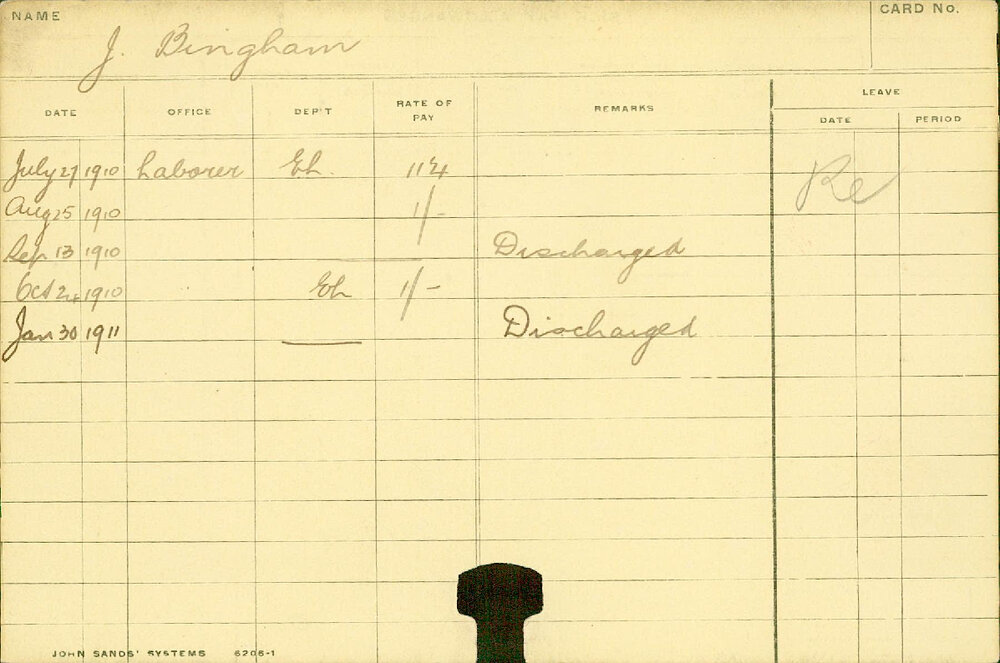 NAME
CARD No.
J. Bingham
DATE OFFICE DEP'T RATE OF PAY REMARKS LEAVE
DATE PERIOD
July 27 1910 Laborer Eh. 11¼ Re
Aug 25 1910 1/-
Sep 13 1910 Discharged
Oct 24 1910 Eh 1/-
Jan 30 1911 Discharged
JOHN SANDS' SYSTEMS 6206-1